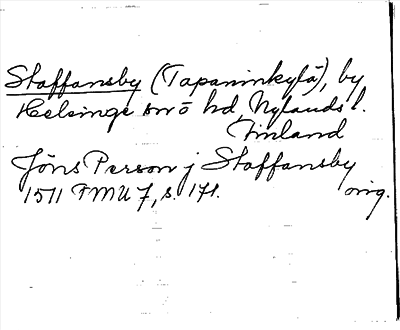 Staffansby (Tapaninkylä), by
Helsinge sn o hd Nylands l.
Finland
Jöns Person j Staffansby
1511 FMU 7, s. 171. orig.